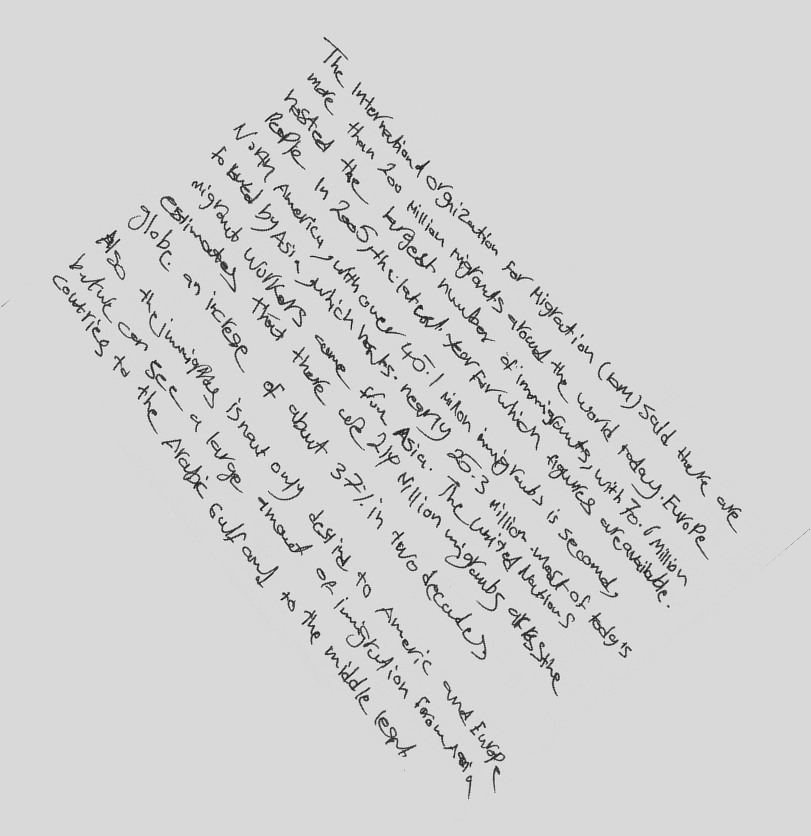 The International Orgnization for Migration (IOM) Said there are
more than 200 Million migrants around the world today. Europe
hosted the largest number of immigrants, with 70.6 Million
People in 2005, the latest year for which figures are available.
North America, with over 45.1 Million immigrants is second,
followed by Asia, which hosts nearly 25.3 Million most of today's
migrant workers come from Asia. The United Nations
estimates that there are 214 Million migrants
globe. an increse of about 37% in two decades
Also the is not only desind to Americ and Europe
but we can see a large amount of imigration from Asia
countries to the Arabic Gulf and to the middle